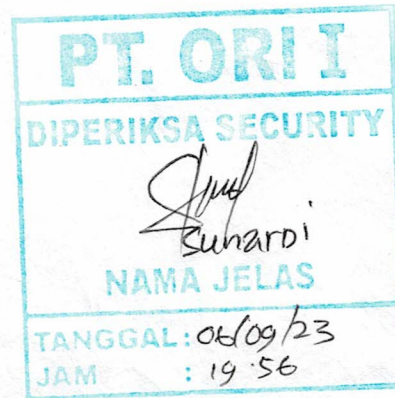 PT. ORI I
DIPERIKSA SECURITY
Sunardi
NAMA JELAS
TANGGAL : 06/09/23
JAM : 19.56